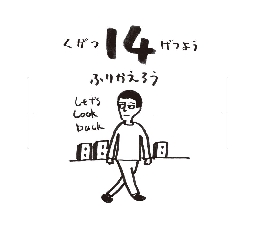 くがつ 14 げつよう
ふりかえろう
Let's
Look
back